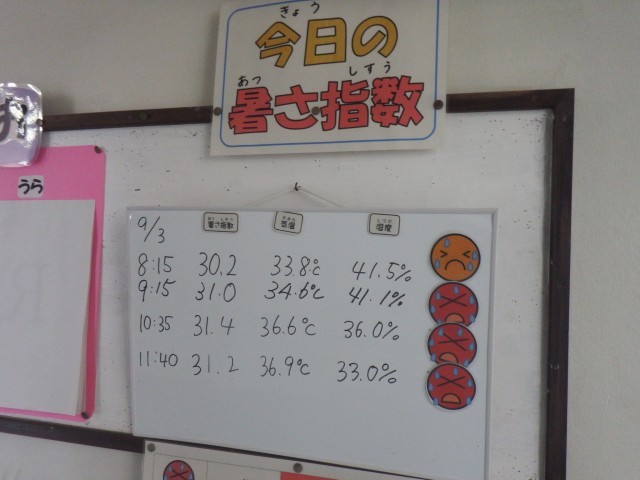 きょう
今日の
あつ しすう
暑さ指数
うら
9/3 暑さ指数 気温 湿度
8:15 30.2 33.8℃ 41.5%
9:15 31.0 34.6℃ 41.1%
10:35 31.4 36.6℃ 36.0%
11:40 31.2 36.9℃ 33.0%